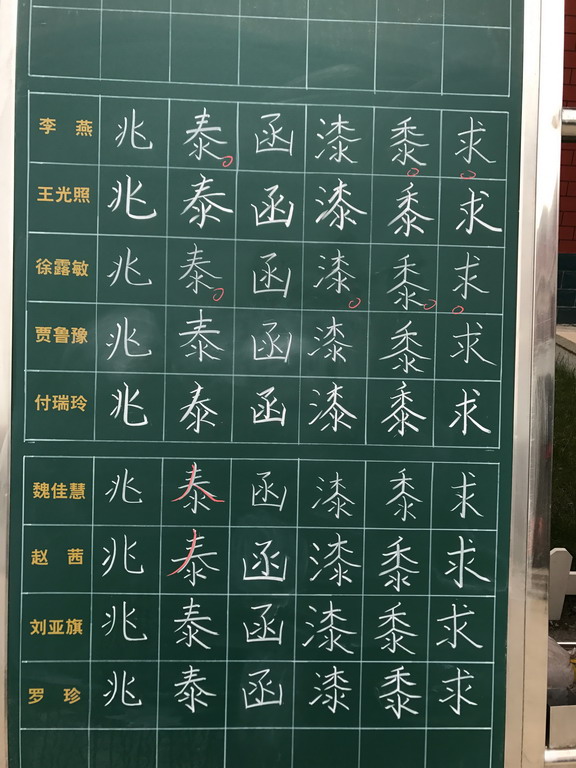 李燕 兆 泰 函 漆 黍 求
王光照 兆 泰 函 漆 黍 求
徐露敏 兆 泰 函 漆 黍 求
贾鲁豫 兆 泰 函 漆 黍 求
付瑞玲 兆 泰 函 漆 黍 求
魏佳慧 兆 泰 函 漆 黍 求
赵茜 兆 泰 函 漆 黍 求
刘亚旗 兆 泰 函 漆 黍 求
罗珍 兆 泰 函 漆 黍 求